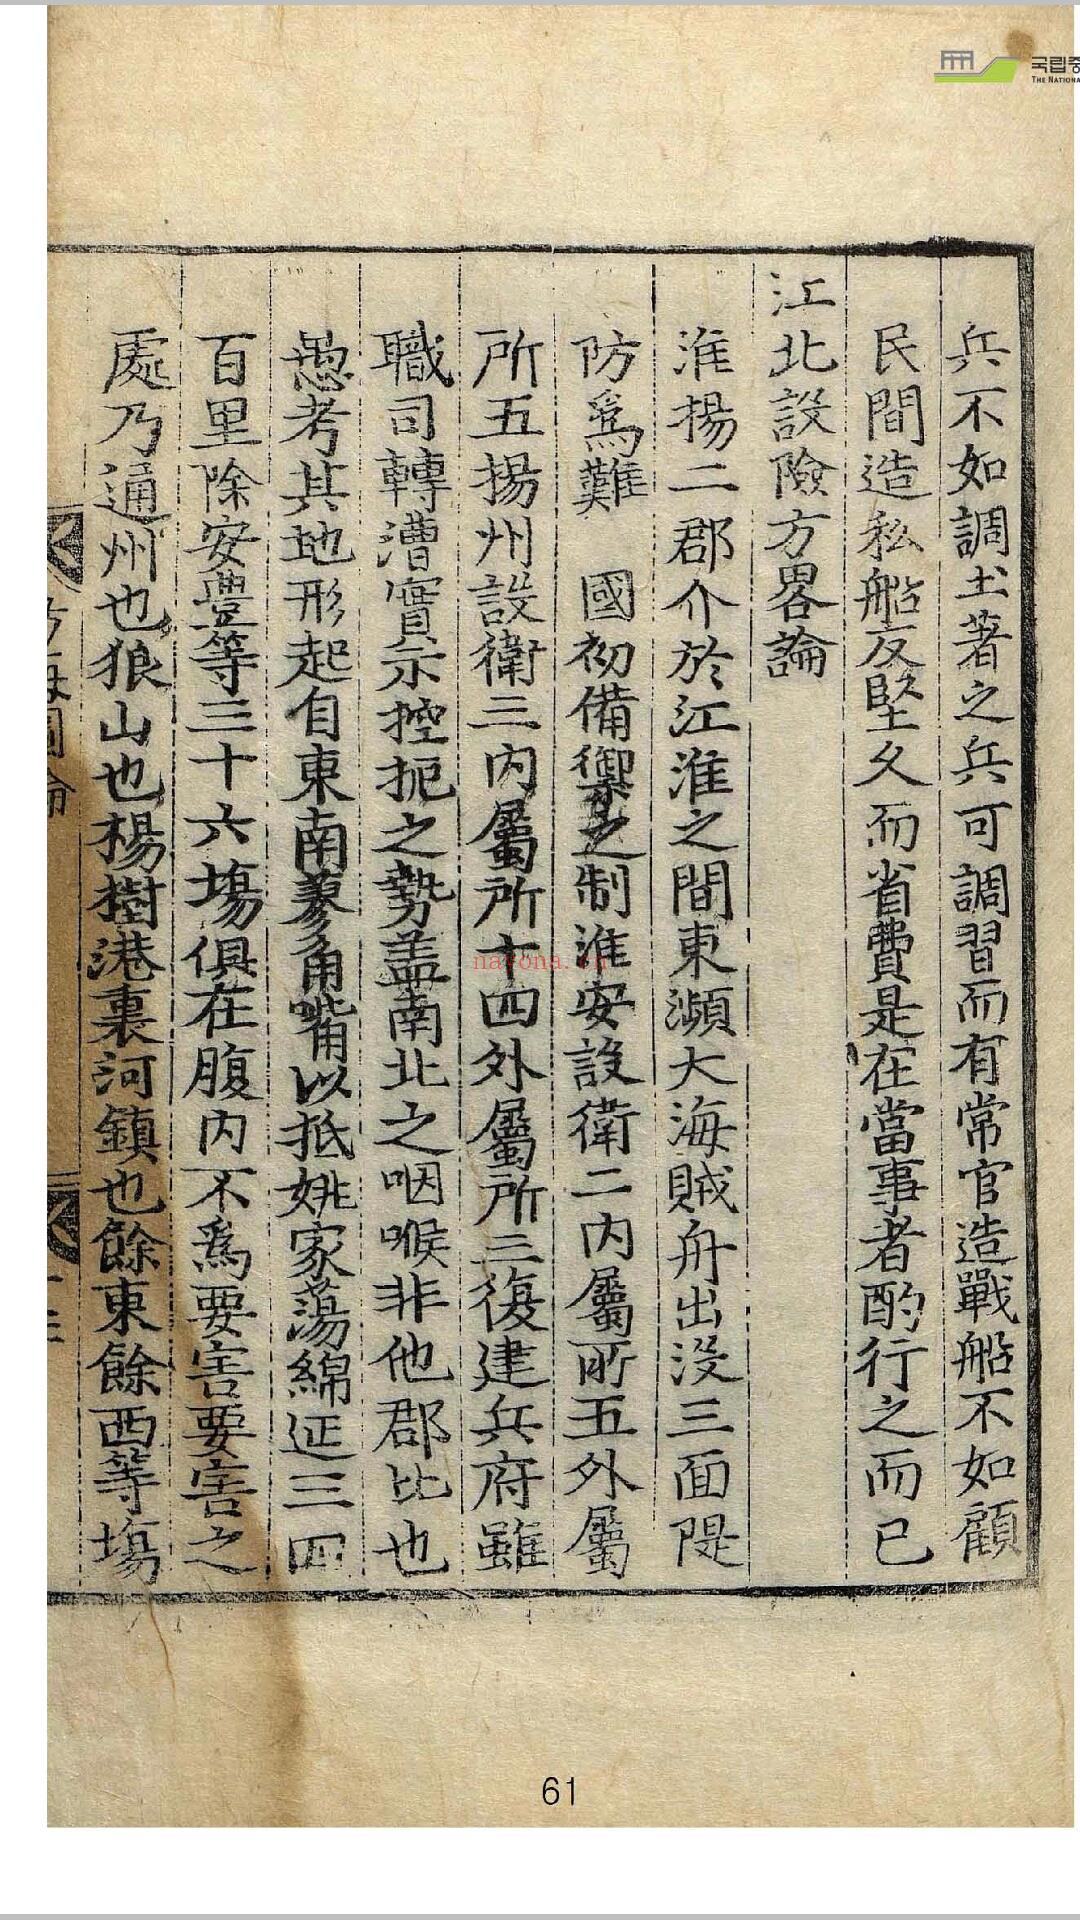 兵不如調土著之兵可調習而有常官造戰船不如顧
民間造私船反堅久而省費是在當事者酌行之而已
江北設險方畧論
淮揚二郡介於江淮之間東瀕大海賊舟出沒三面隄
防爲難 國初備禦之制淮安設衛二內屬所五外屬
所五揚州設衛三內屬所十四外屬所三復建兵府雖
職司轉漕實示控扼之勢盖南北之咽喉非他郡比也
愚考其地形起自東南蓼角嘴以抵姚家蕩綿延三四
百里除安豐等三十六塲俱在腹內不爲要害要害之
處乃通州也狼山也楊樹港裏河鎮也餘東餘西等塲
61
国립중
THE NATIONA
nayona.cn